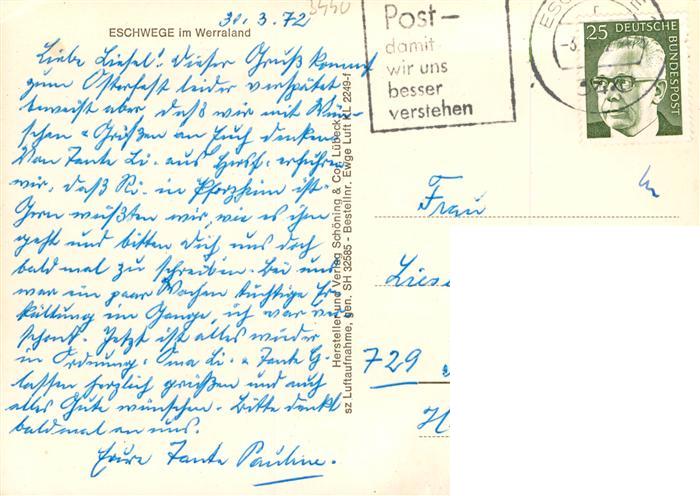 30.3.72
ESCHWEGE im Werraland
Liebe Liesel! Dieser Gruß kommt
zum Osterfest leider verspätet
beweist aber daß wir mit Wün-
schen u Grüßen an Euch denken.
Von Tante Li. aus erfuhren
wir, daß Ri. in Pforzheim ist.
Gern wüßten wir, wie es ihm
geht und bitten Dich uns doch
bald mal zu schreiben. Bei uns
war ein paar Wochen tüchtige Er-
kältung im Gange, ich war ver-
schont. Jetzt ist alles wieder
in Ordnung. Oma Li. u Tante G.
lassen herzlich grüßen und auch
alles Gute wünschen. Bitte denkt
bald mal an uns.
Eure Tante Pauline.
Hersteller und Verlag Schöning & Co., Lübeck
sz Luftaufnahme, gen. SH 32585 - Bestellnr. Ewge Luft KL 2249-f
Post-
damit
wir uns
besser
verstehen
25 DEUTSCHE
BUNDESPOST
Frau
Liese
729
H